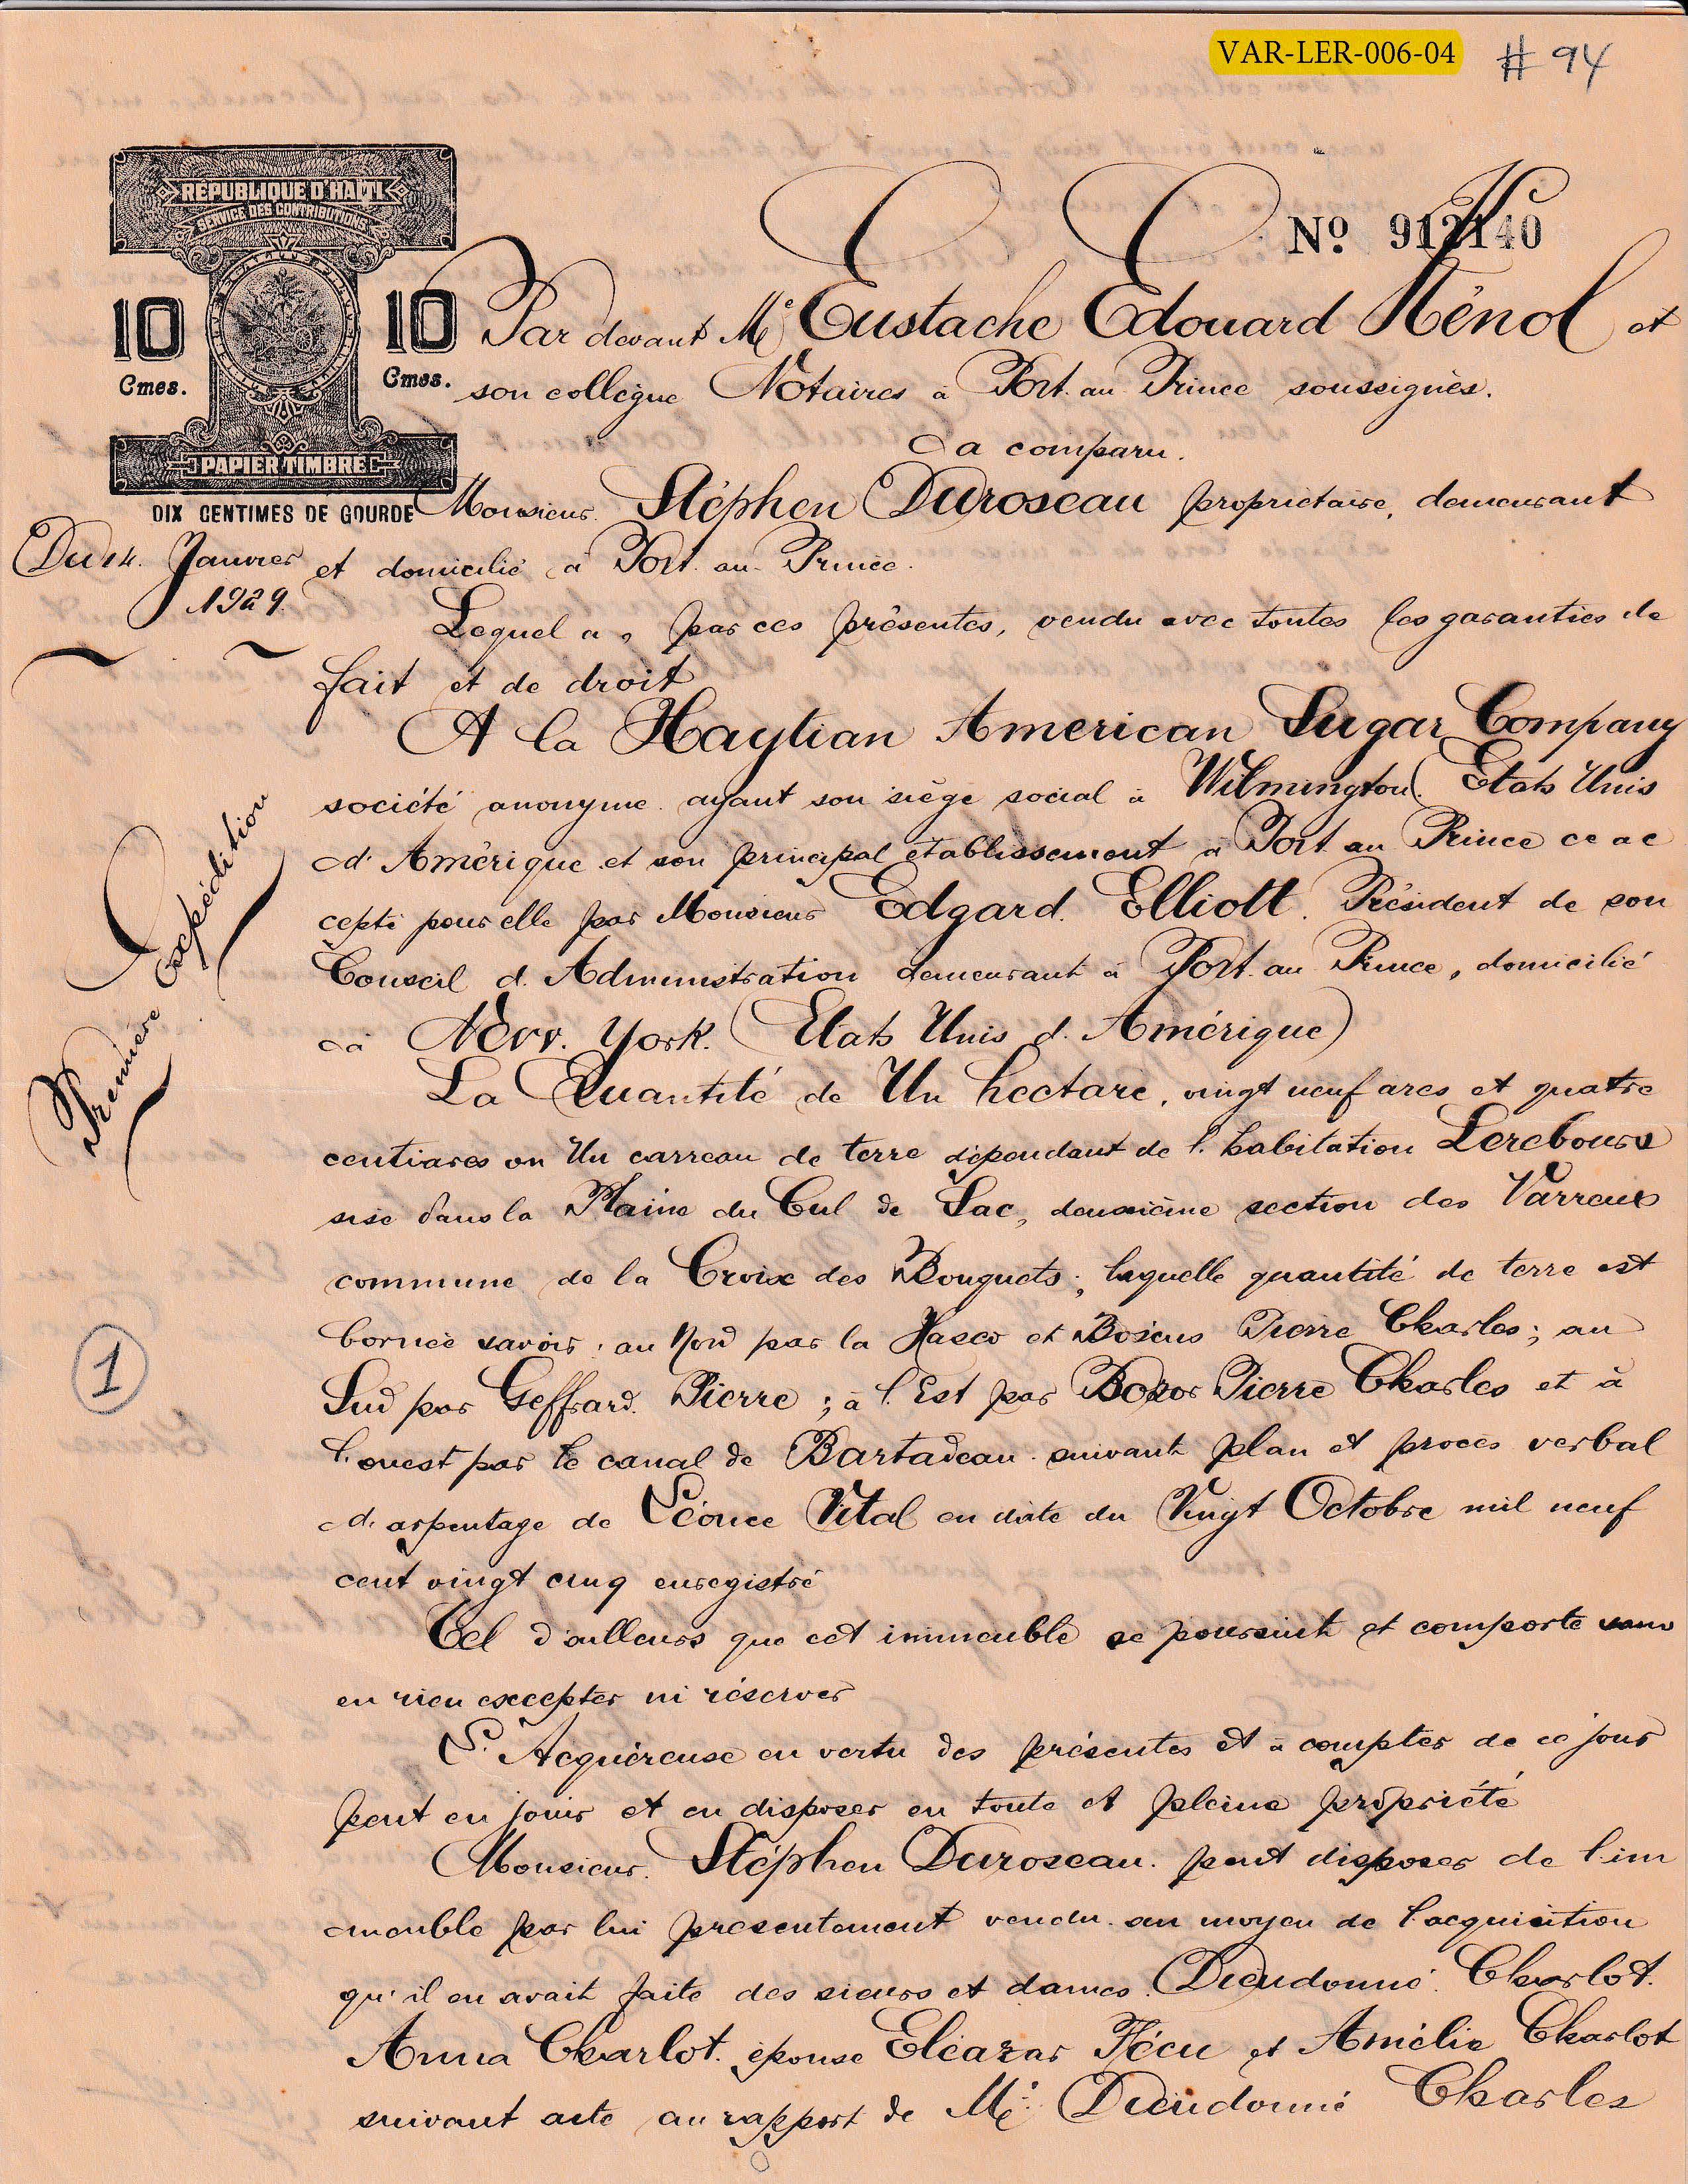 VAR-LER-006-04 # 94
RÉPUBLIQUE D'HAÏTI
SERVICE DES CONTRIBUTIONS
Nº 912140
10 10
Cmes. Cmes.
PAPIER TIMBRE
DIX CENTIMES DE GOURDE
Par devant Me Eustache Edouard Hénol et
son collègue Notaires à Port. au Prince soussignés.
a comparu.
Monsieur. Stéphen Duroseau propriétaire, demeurant
et domicilié à Port. au. Prince.
Du 14. Janvier
1929.
Lequel a, par ces présentes, vendu avec toutes les garanties de
fait et de droit
A la Haytian American Sugar Company
société anonyme. ayant son siège social à Wilmington (Etats Unis
d'Amérique et son principal établissement à Port au Prince ce ac
cepté pour elle par Monsieur Edgard. Elliott. Président de son
Conseil d'Administration demeurant à Port. au Prince, domicilié
à New. York. (Etats Unis d'Amérique)
Première Expédition
La Quantité de Un hectare, vingt neuf ares et quatre
centiares ou Un carreau de terre dépendant de l'habitation Lerebours
sise dans la Plaine du Cul de Sac, deuxième section des Varreux
commune de la Croix des Bouquets; laquelle quantité de terre est
bornée savoir: au Nord par la Hasco et Bosicus Pierre Charles; au
1
Sud par Geffrard. Pierre; à l'Est par Bozor Pierre Charles et à
l'ouest par le canal de Bartadeau. suivant plan et procès verbal
d'arpentage de Léonce Vital en date du Vingt Octobre mil neuf
cent vingt cinq enregistré
Tel d'ailleurs que cet immeuble se poursuit et comporte sans
en rien excepter ni réserver
L'Acquéreuse en vertu des présentes et à compter de ce jour
peut en jouir et en disposer en toute et pleine propriété
Monsieur. Stéphen Duroseau. peut disposer de l'im
meuble par lui présentement vendu. au moyen de l'acquisition
qu'il en avait faite des sieurs et dames. Dieudonné. Charlot.
Anna Charlot. épouse Eléazar Fécu et Amélie Charlot
suivant acte au rapport de Me: Dieudonné Charles